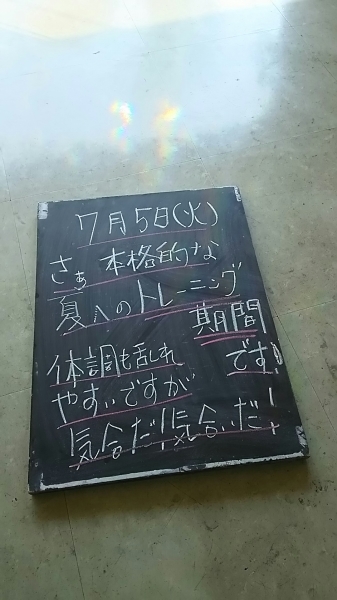 7月5日(火)
さぁ 本格的な
夏へのトレーニング
期間
です!
体調も乱れ
やすいですが
気合だ!気合いだ!